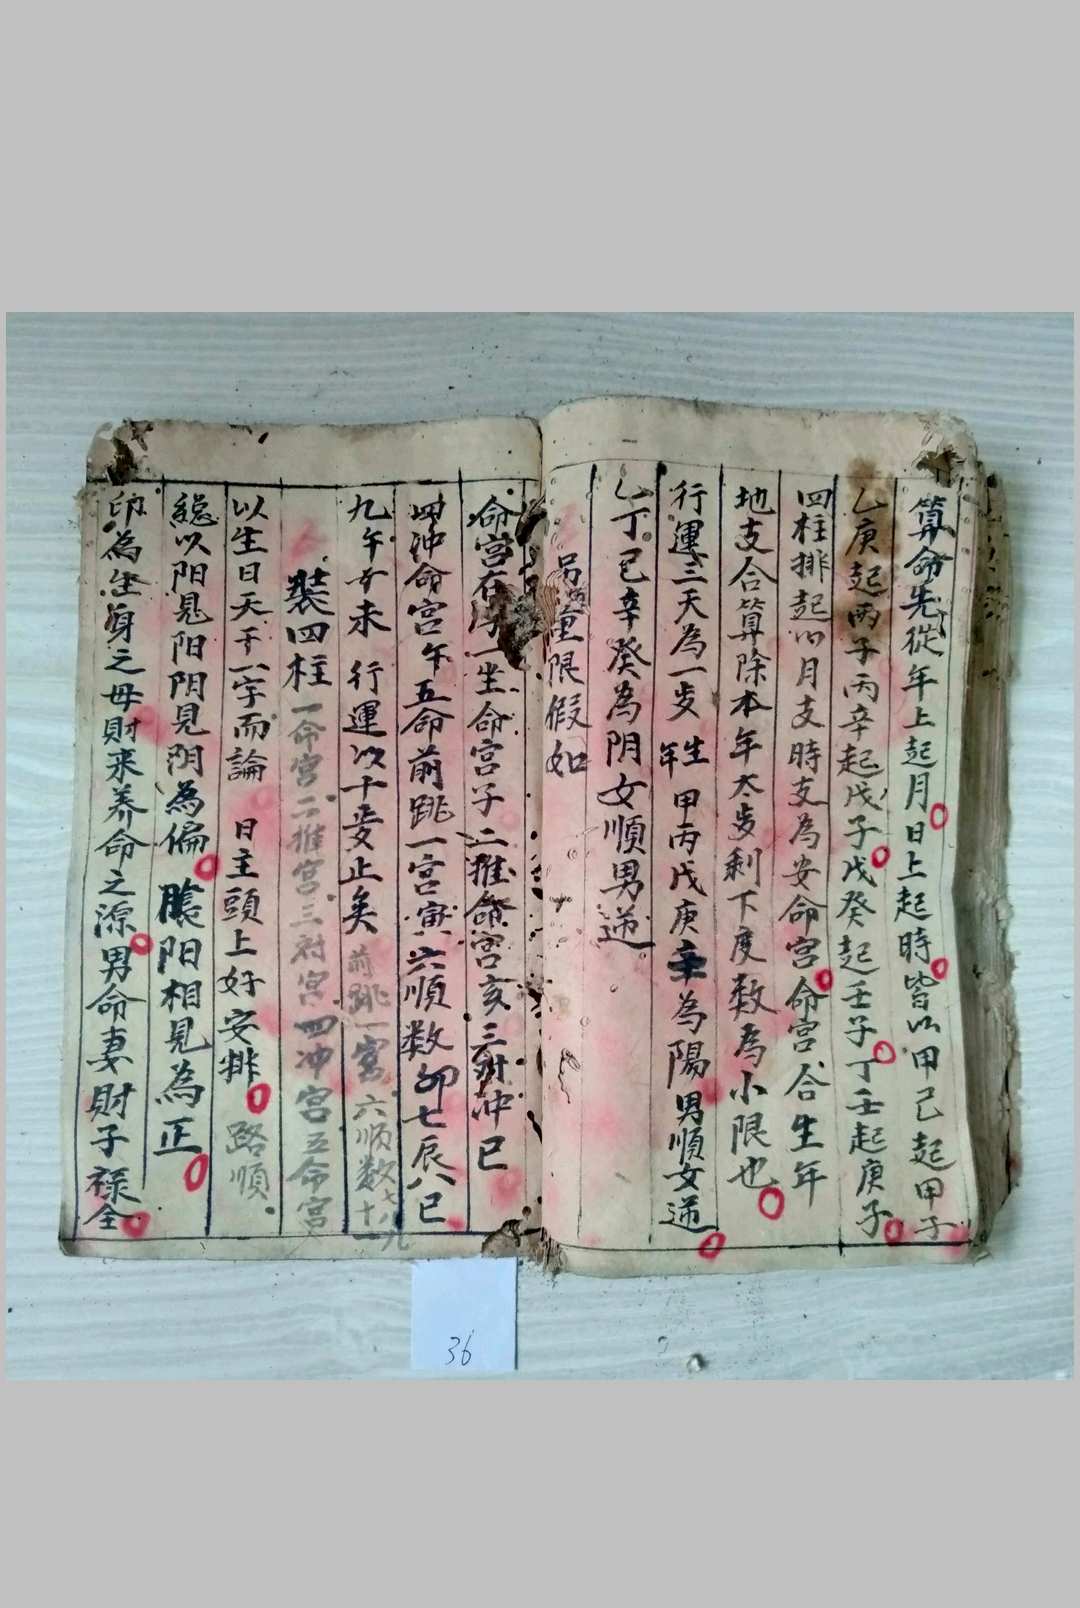 算命先從年上起月日上起時皆以甲己起甲子
乙庚起丙子丙辛起戊子戊癸起壬子丁壬起庚子
四柱排起以月支時支為安命宮命宮合生年
地支合算除本年太岁剩下度数為小限也
行運三天為一岁 生年甲丙戊庚為陽男順女逆
乙丁己辛癸為阴女順男逆
吊童限假如
命宮在 一坐命宮子二推命宮亥三對冲巳
四沖命宮午五命前跳一宮寅六順数卯七辰八巳
九午十未 行運以十岁止矣 前跳一宮六顺数七八九十
裝四柱 一命宮二推宮三对宮四冲宮五命宮
以生日天干一字而論 日主頭上好安排 路順
總以阳見阳阴見阴為偏 陰阳相見為正
印為生身之母財來养命之源男命妻財子禄全
36